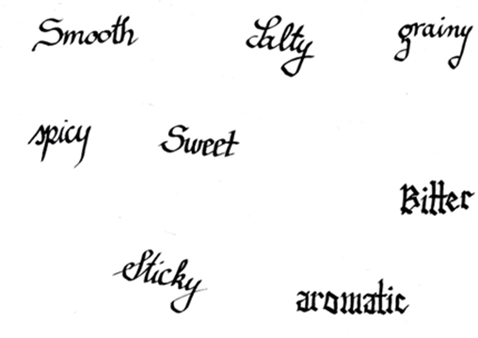 Smooth
Salty
grainy
spicy
Sweet
Bitter
Sticky
aromatic